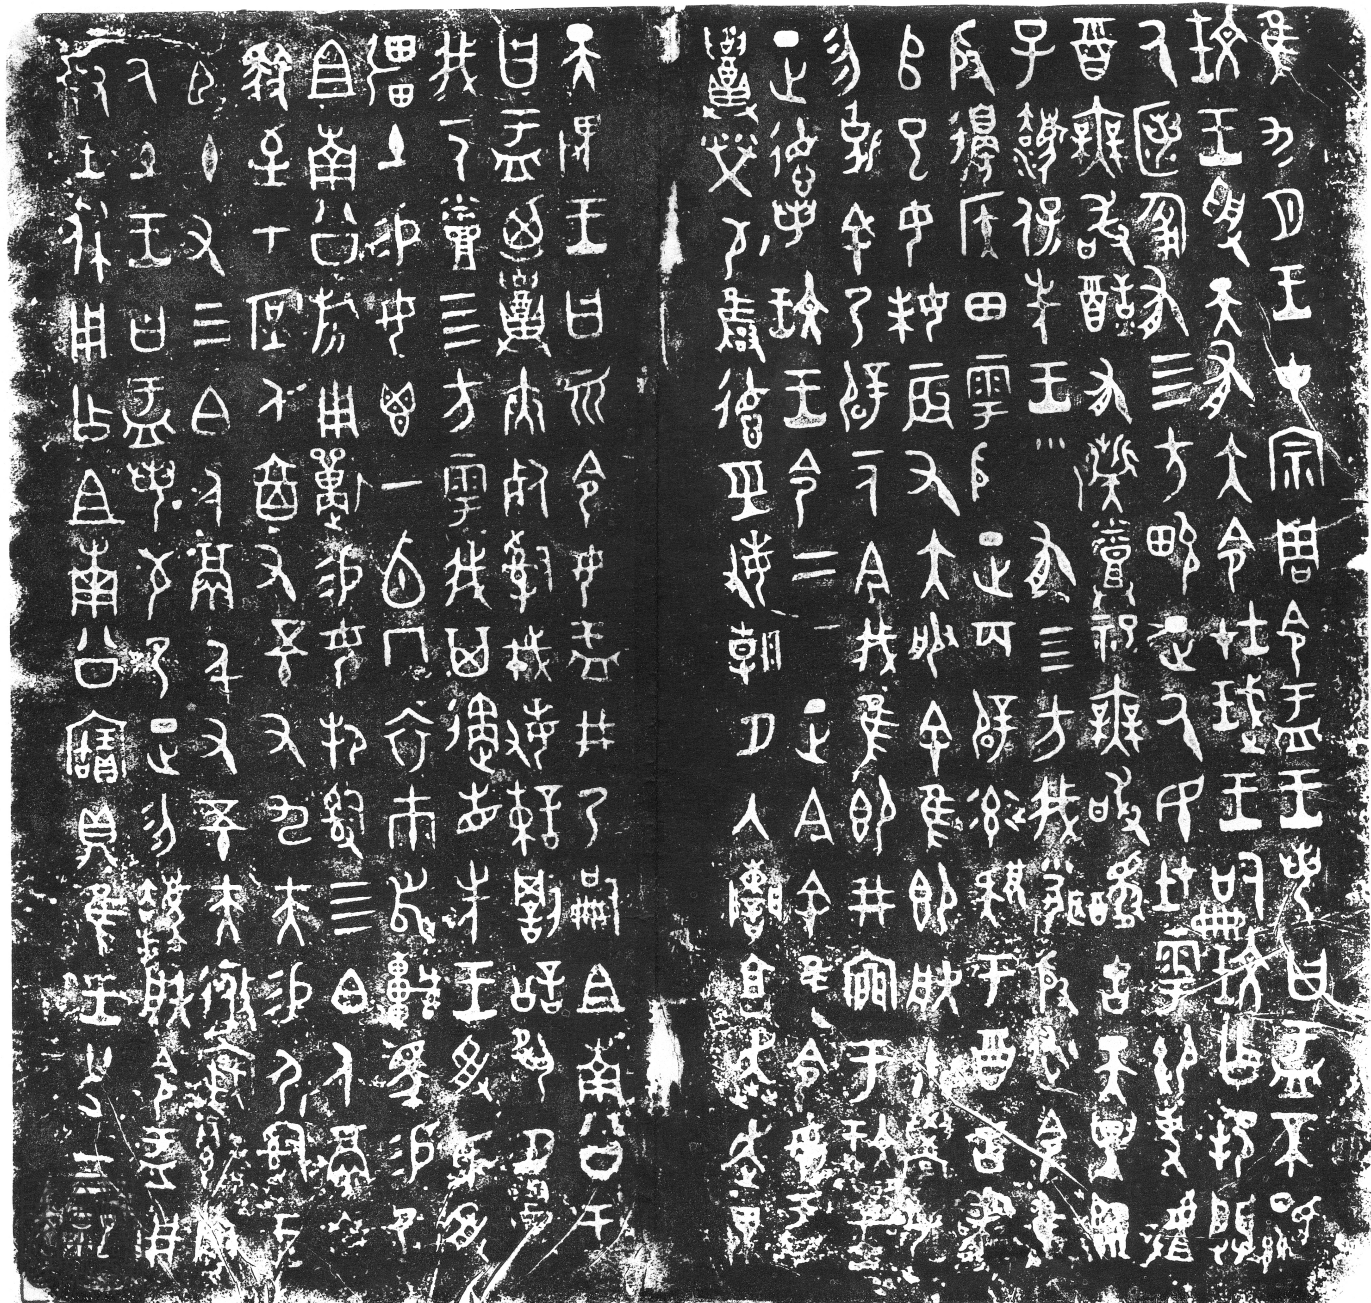 隹九月王才宗周令盂王若曰盂不顯
玟王受天有大令在珷王嗣玟乍邦闢
厥匿匍有四方畯正厥民在雩御事䖒
酉無敢酖有祡烝祀無敢古天異臨
子法保先王有四方我聞殷述令隹
殷邊侯田雩殷正百辟率肄于酉古喪
師已女妹辰又大服余隹即朕小學女
勿剋余乃辟一人今我隹即井㐭于玟王
正德若玟王令二三正今余隹令女盂
召榮敬雍德巠敏朝夕入讕享奔走畏
天畏王曰令女盂井乃嗣且南公王
曰盂廼召夾死司戎敏諫罰訟夙夕召
我一人烝四方雩我其遹省先王受民受
疆土易女鬯一卣冂衣巿舄車馬易乃
且南公旂用狩易女邦司四白人鬲自
馭至于庶人六百又五十又九夫易尸司王
臣十又三白人鬲千又五十夫遷自
厥土王曰盂若敬乃正勿灋朕令盂用
對王休用乍且南公寶鼎隹王廿又三祀